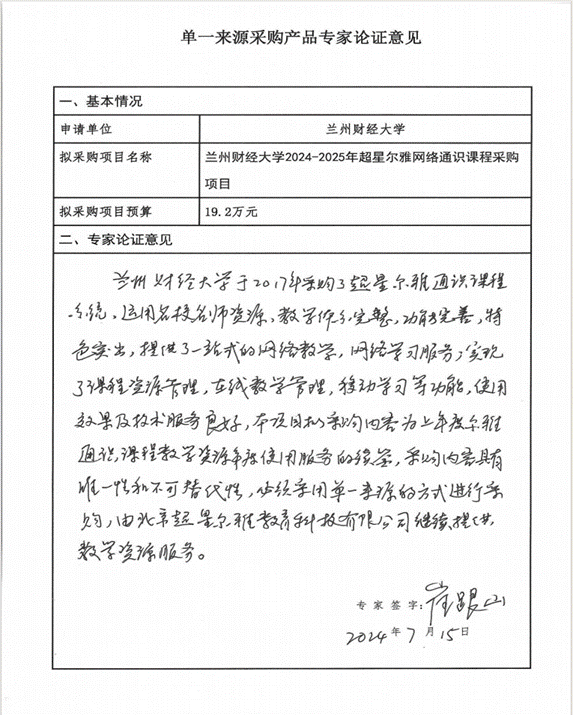 单一来源采购产品专家论证意见
一、基本情况
申请单位 兰州财经大学
拟采购项目名称 兰州财经大学2024-2025年超星尔雅网络通识课程采购
项目
拟采购项目预算 19.2万元
二、专家论证意见
兰州财经大学于2017年采购了超星尔雅通识课程
系统。运用名校名师资源、教学体系完整,功能完善,特
色突出,提供了一站式的网络教学,网络学习服务;实现
了课程资源管理,在线教学管理,移动学习等功能,使用
效果及技术服务良好,本项目拟采购内容为上年度尔雅
通识课程教学资源年度使用服务的续签,采购内容具有
唯一性和不可替代性,必须采用单一来源的方式进行采
购,由北京超星尔雅教育科技有限公司继续提供
教学资源服务。
专家签字:崔银山
2024年7月15日